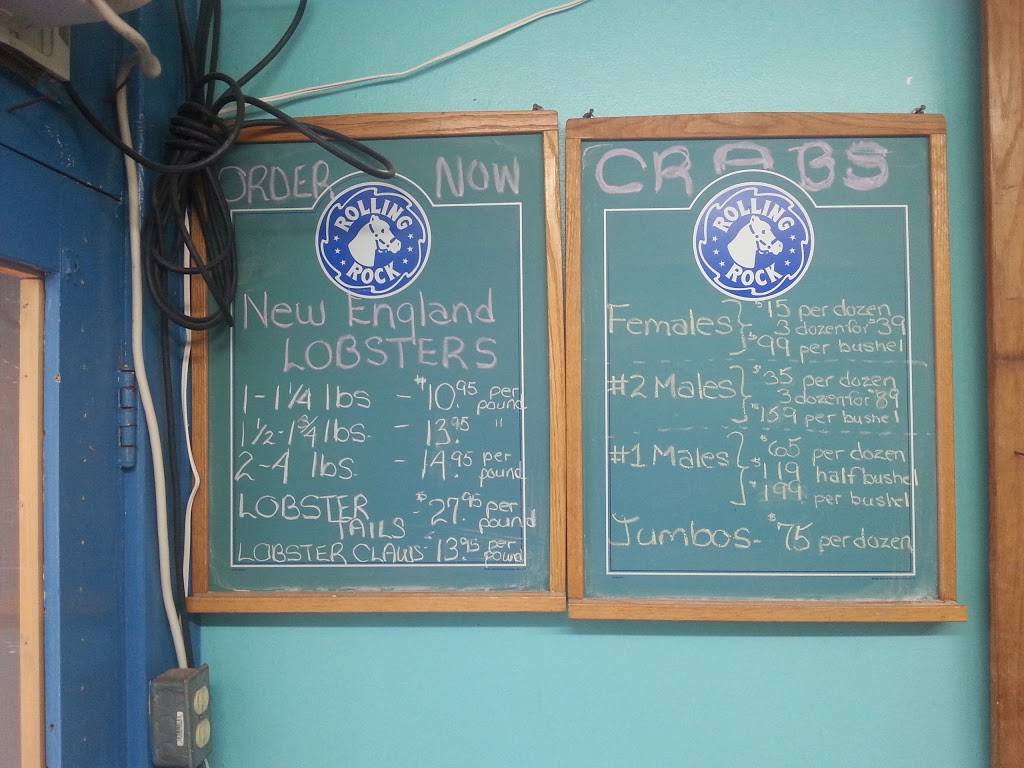 ORDER NOW
ROLLING
ROCK
New England
LOBSTERS
1-1 1/4 lbs - $10.95 per pound
1 1/2-1 3/4 lbs. - 13.95 "
2-4 lbs. - 14.95 per pound
LOBSTER TAILS - $27.95 per pound
LOBSTER CLAWS - 13.95 per pound
CRABS
ROLLING
ROCK
Females } $15 per dozen
3 dozen for $39
$99 per bushel
#2 Males } $35 per dozen
3 dozen for $89
$159 per bushel
#1 Males } $65 per dozen
$119 half bushel
$199 per bushel
Jumbos - $75 per dozen